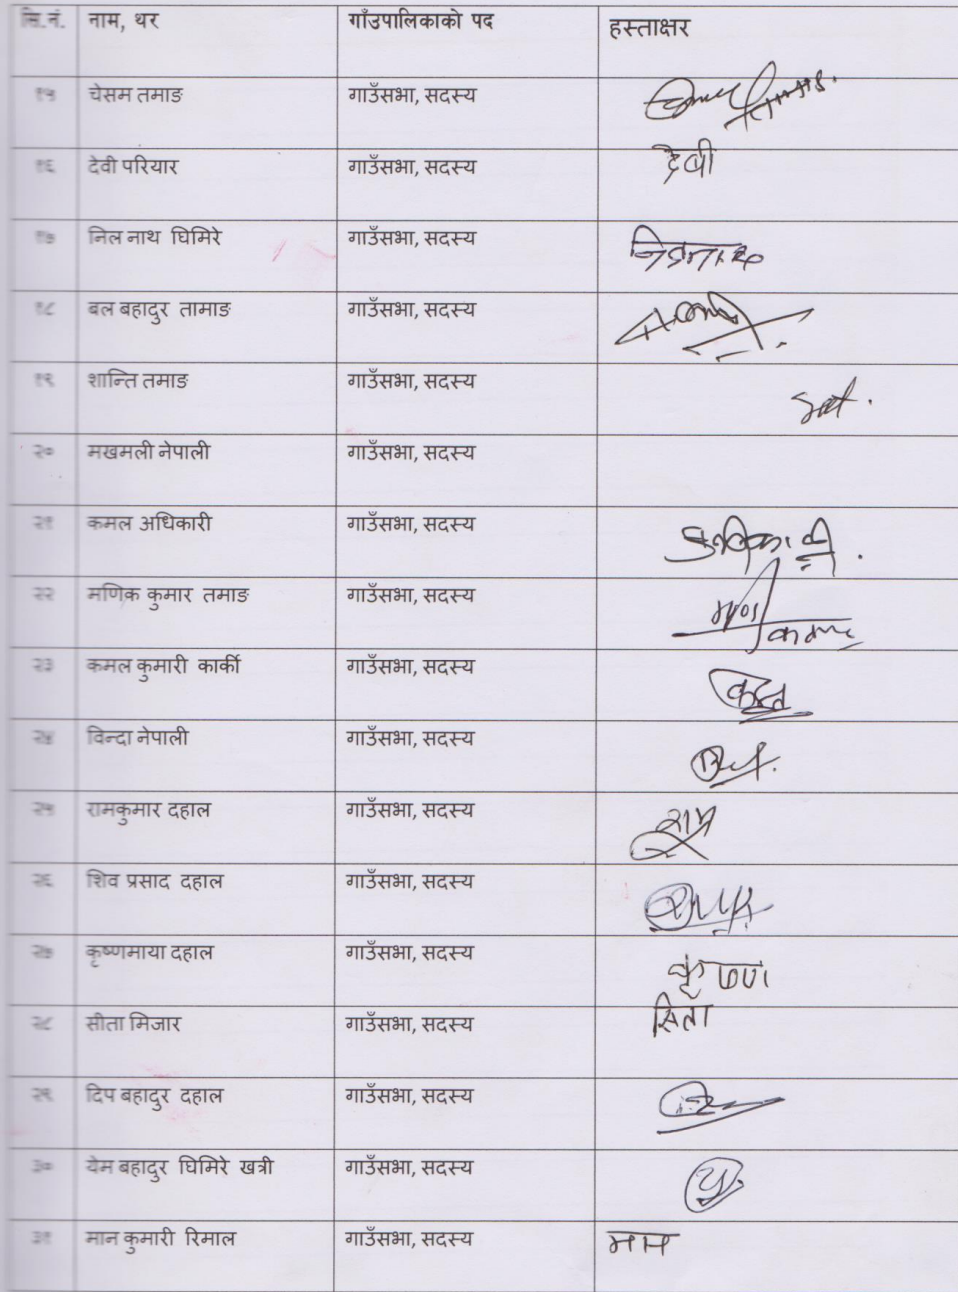 सि.नं. नाम, थर गाँउपालिकाको पद हस्ताक्षर
१५ चेसम तमाङ गाउँसभा, सदस्य
१६ देवी परियार गाउँसभा, सदस्य देवी
१७ निल नाथ घिमिरे गाउँसभा, सदस्य
१८ बल बहादुर तामाङ गाउँसभा, सदस्य
१९ शान्ति तमाङ गाउँसभा, सदस्य
२० मखमली नेपाली गाउँसभा, सदस्य
२१ कमल अधिकारी गाउँसभा, सदस्य
२२ मणिक कुमार तमाङ गाउँसभा, सदस्य
२३ कमल कुमारी कार्की गाउँसभा, सदस्य
२४ विन्दा नेपाली गाउँसभा, सदस्य
२५ रामकुमार दहाल गाउँसभा, सदस्य राम
२६ शिव प्रसाद दहाल गाउँसभा, सदस्य
२७ कृष्णमाया दहाल गाउँसभा, सदस्य कृष्ण
२८ सीता मिजार गाउँसभा, सदस्य सिता
२९ दिप बहादुर दहाल गाउँसभा, सदस्य
३० येम बहादुर घिमिरे खत्री गाउँसभा, सदस्य
३१ मान कुमारी रिमाल गाउँसभा, सदस्य मान